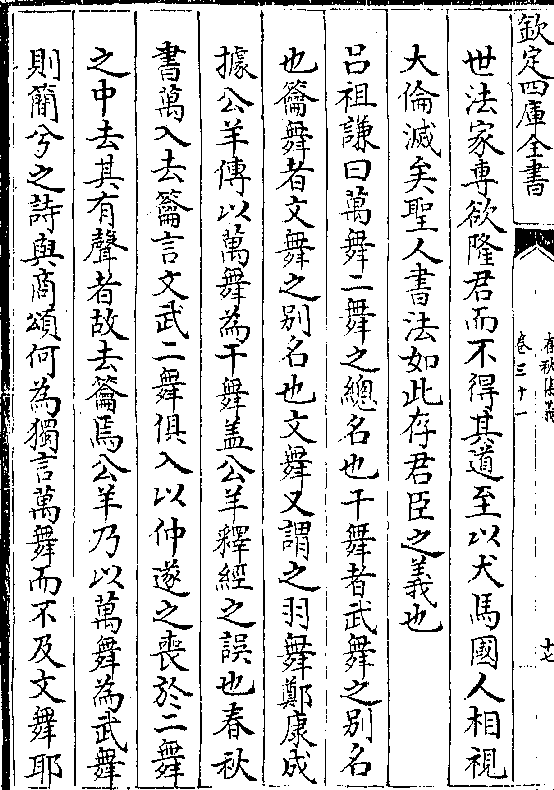 欽定四庫全書
卷三十一
十七
世法家専欲隆君而不得其道至以犬馬國人相視
大倫滅矣聖人書法如此存君臣之義也
吕祖謙曰萬舞二舞之總名也干舞者武舞之别名
也籥舞者文舞之别名也文舞又謂之羽舞鄭康成
據公羊傳以萬舞為干舞盖公羊釋經之誤也春秋
書萬入去籥言文武二舞俱入以仲遂之喪於二舞
之中去其有聲者故去籥焉公羊乃以萬舞為武舞
則簡兮之詩與商頌何為獨言萬舞而不及文舞耶